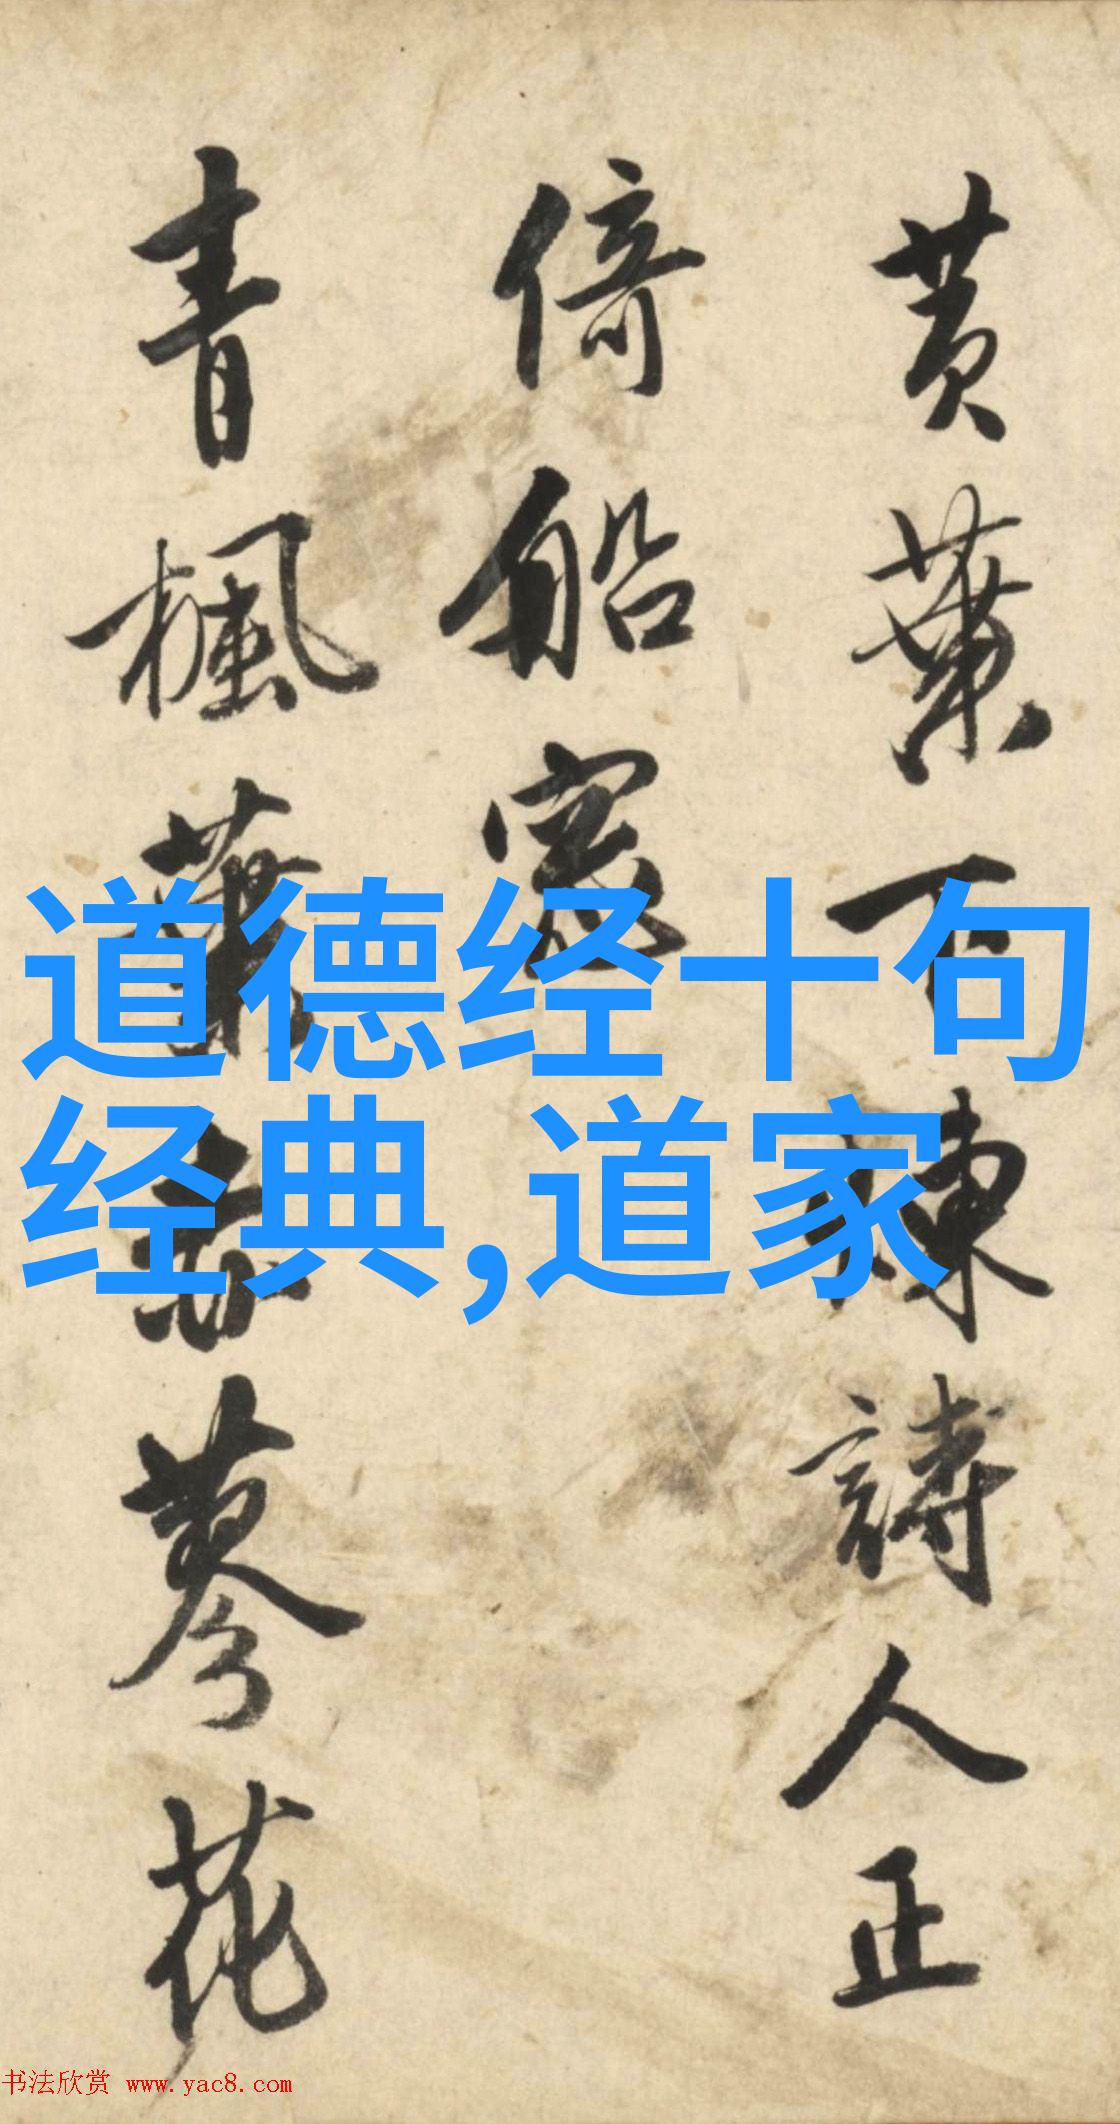 黄葉下詩人正
倚船窓
青楓蓼花
道德经十句
经典,道家
书法欣赏 www.yac8.com